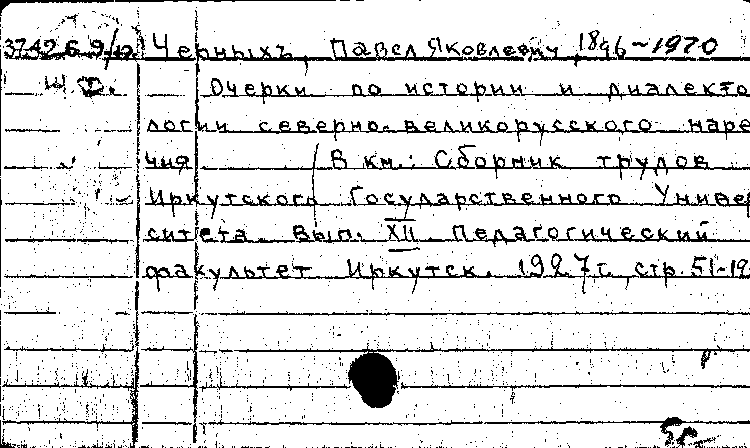 37426 9/12 Черныхъ, Павел Яковлевич, 1896-1970
Ш. Ф. Очерки по истории и диалекто
логии северно-великорусского наре
чия (В кн.: Сборник трудов
Иркутского Государственного Универ
ситета. Вып. XII Педагогический
факультет Иркутск. 1927 г., стр. 51-